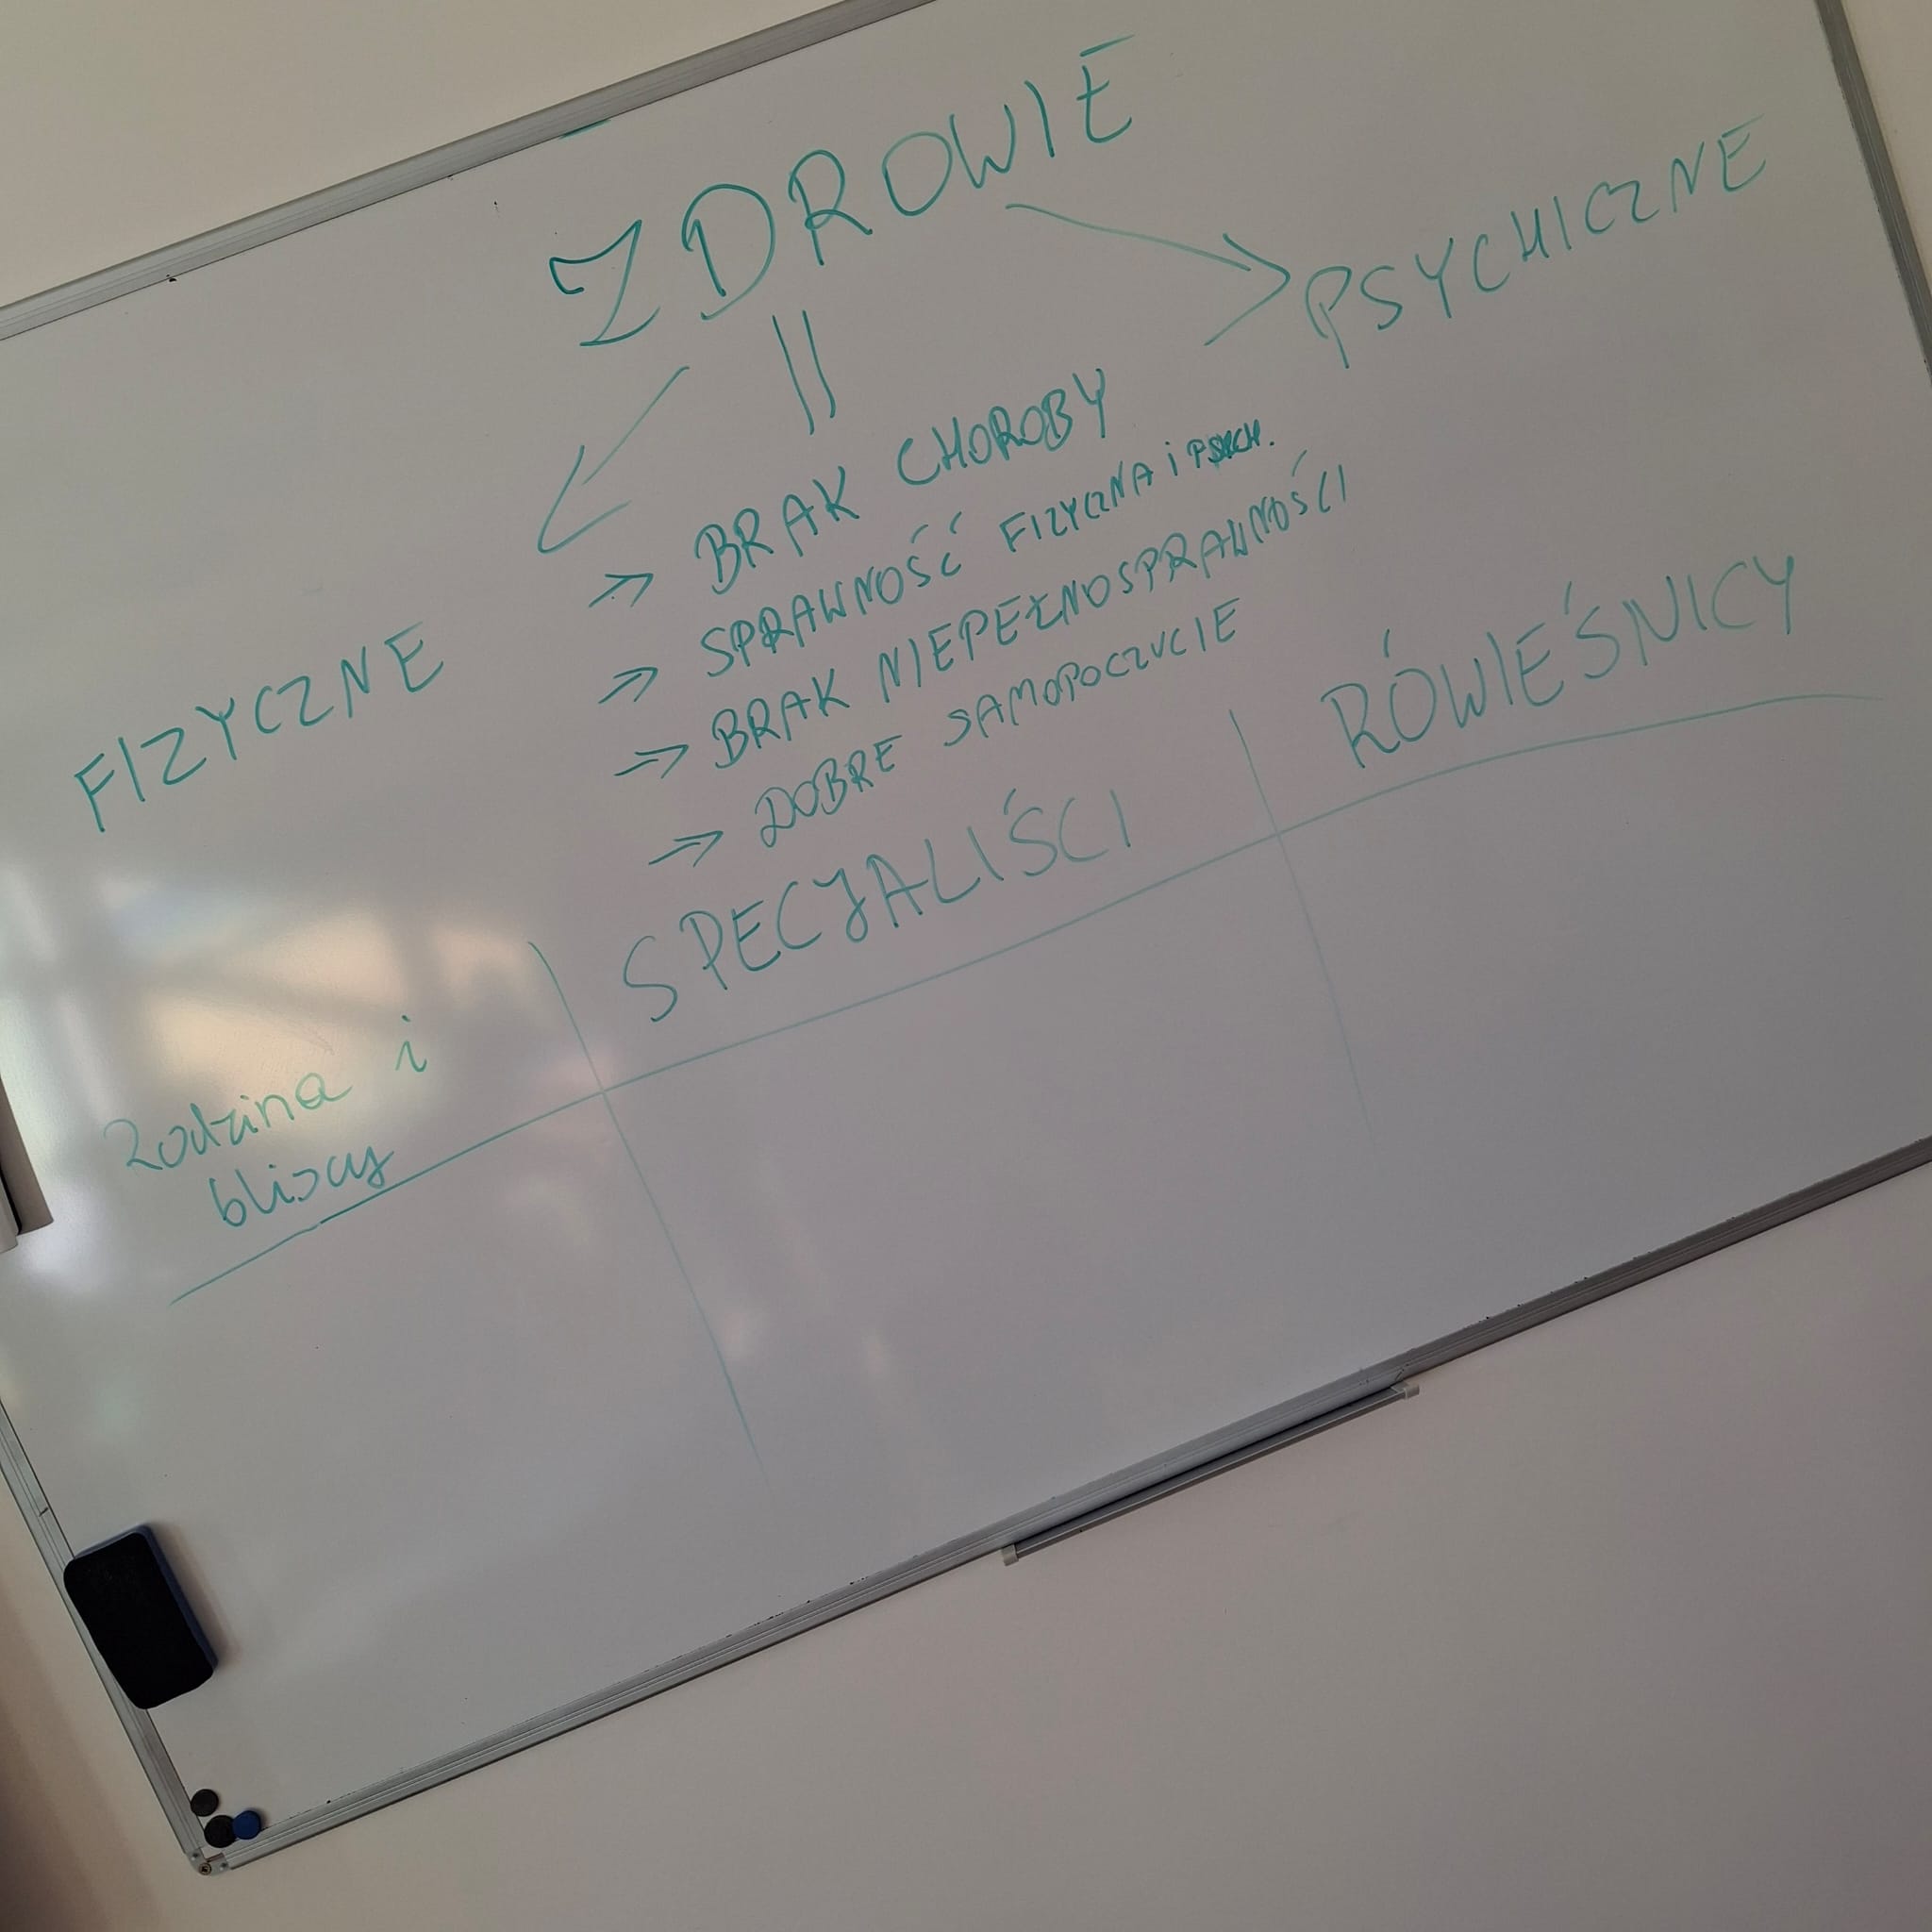 ZDROWIE
PSYCHICZNE
FIZYCZNE
=> BRAK CHOROBY
=> SPRAWNOŚĆ FIZYCZNA i PSYCH.
=> BRAK NIEPEŁNOSPRAWNOŚCI
=> DOBRE SAMOPOCZUCIE
Rodzina i
bliscy
SPECJALIŚCI
RÓWIEŚNICY